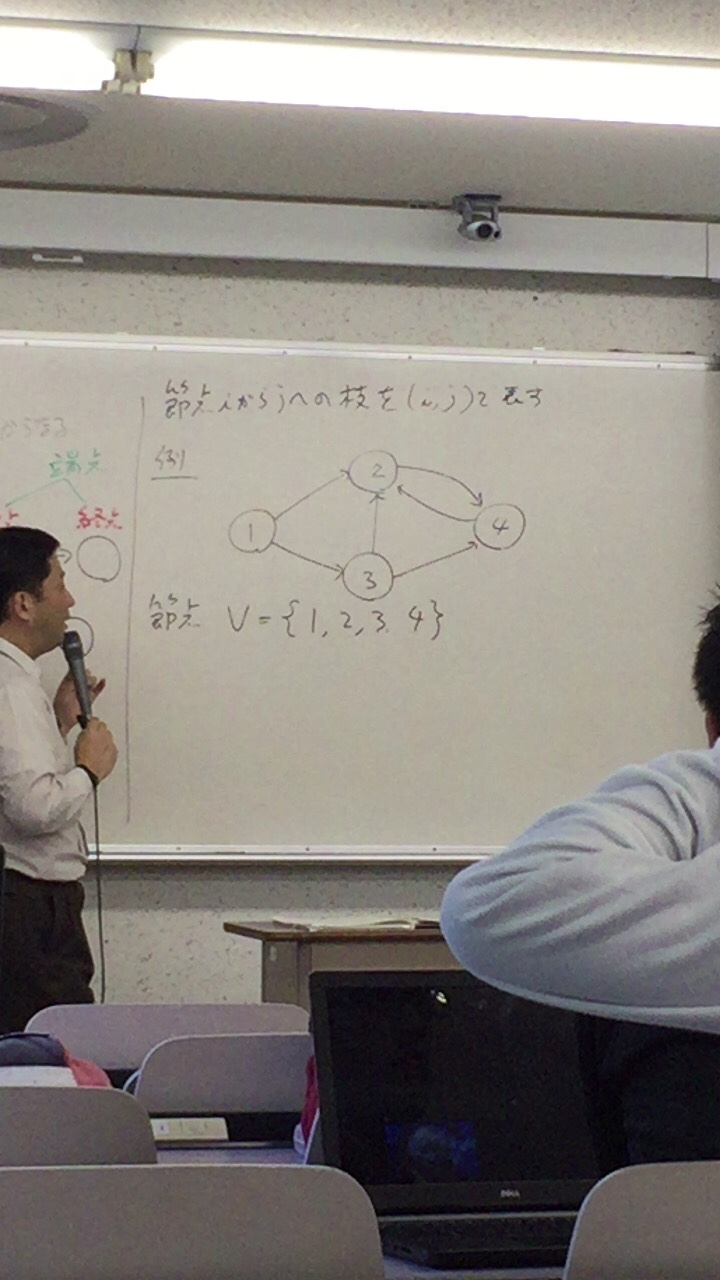 からなる
端点
終点
節点iからjへの枝を(i,j)で表す
例
1
2
3
4
節点 V={1,2,3,4}
DELL